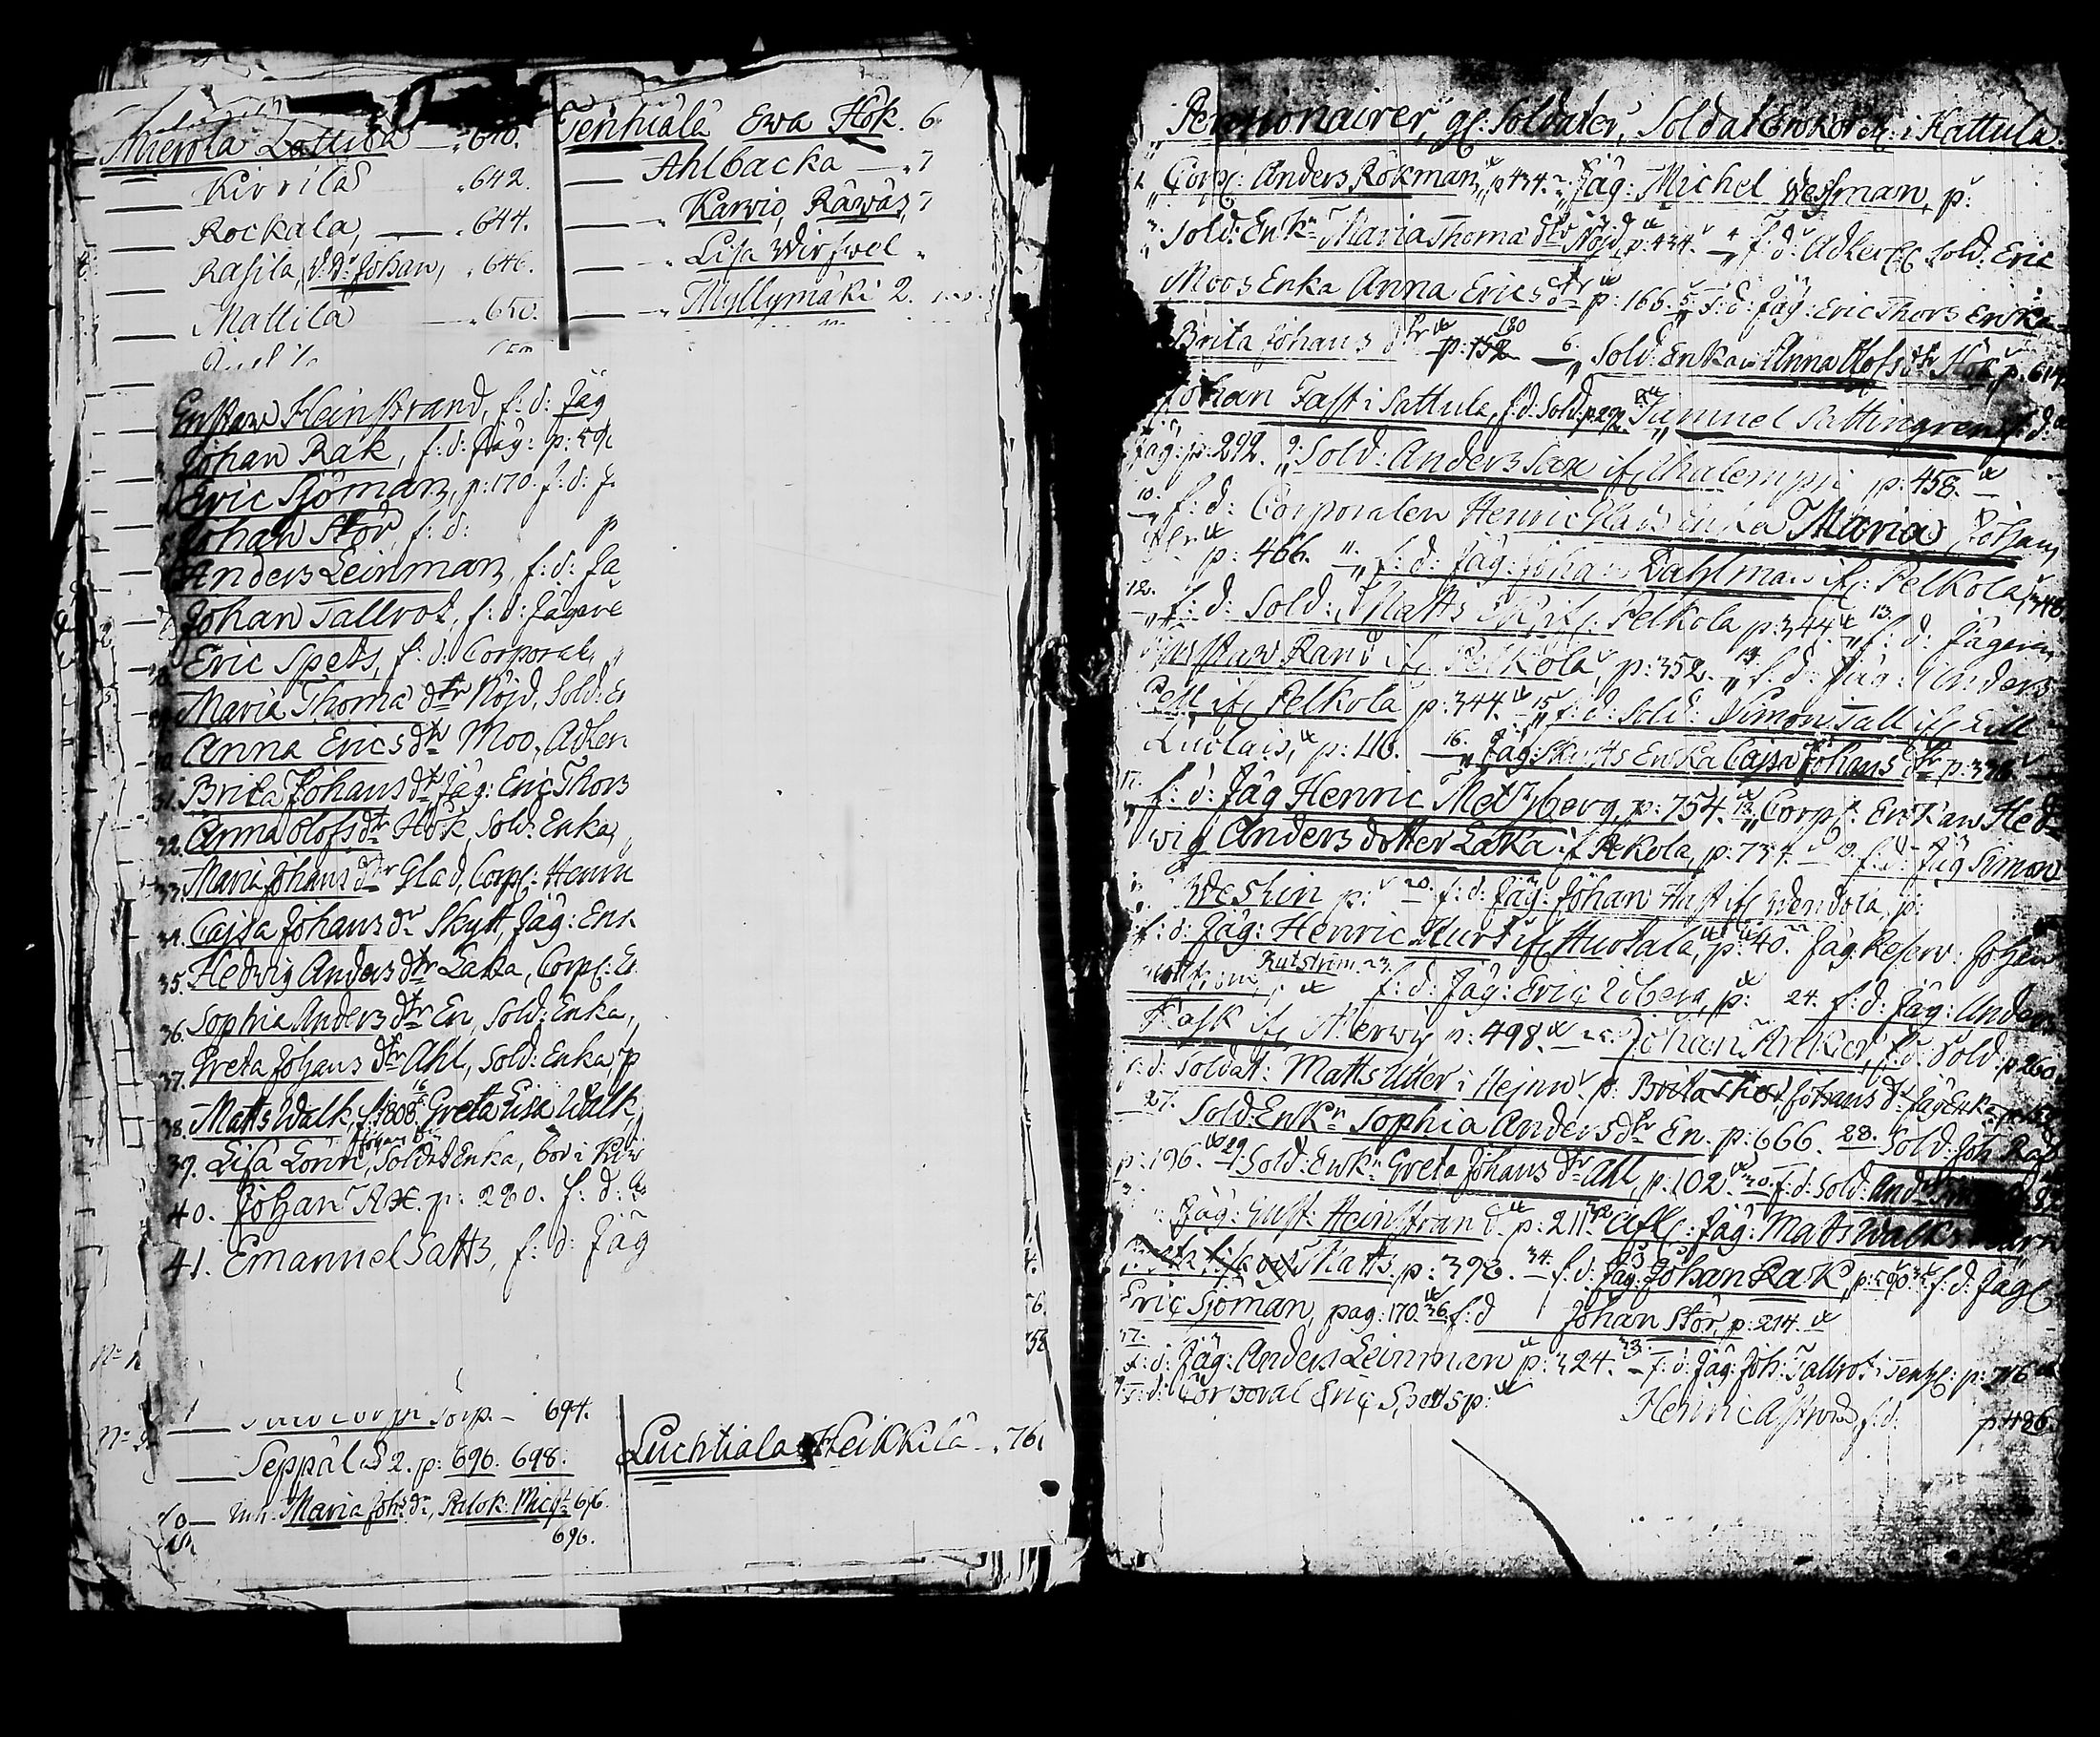 Mierola Lassila — " 640.
— Kirrila " 642.
— Rockala, — " 644.
— Rasila, v.d. Johan, " 646.
— Mattila — " 650.
Tenhiälä Ewa Hök. 6
— Ahlbacka — " 7
— " Karvio, Räwäs, 7
— " Lisa Wirfwel "
— " Myllymäki 2.
Gustaw Heinstrand, f: d: Jäg
Johan Rak, f: d: Jäg: p: 590
Eric Sjöman, p: 170. f: d: J.
Johan Stör, f: d: p
Anders Leinman, f: d: Jä
Johan Tallrot, f: d: Jägare
Eric Spets, f: d: Corporal,
Maria Thoma dtr Nöjd, Sold: E
Anna Erics dtr Moo, Adler
31. Brita Johans dtr Jäg: Eric Thors
32. Anna Olofs dtr Hök, Sold: Enka,
33. Maria Johans dtr Glad, Corpl: Henric
34. Cajsa Johans dr Skytt, Jäg: Enk
35. Hedwig Anders dtr Laka, Corpl: E
36. Sophia Anders dtr En, Sold: Enka,
37. Greta Johans dtr Ahl, Sold: Enka, p
38. Matts Walk, f. 1808. 16 Greta Lisa Walk,
39. Lisa Lönn, Johans dr Soldat Enka, bor i Kir
40. Johan Ax p: 280. f: d:
41. Emanuel Satts, f: d: Jäg
Torp. — 694.
— Seppälä 2. p: 696. 698.
Inh. Maria Johs dr, Palok. Micglt 676.
696.
Luchtiala Heikkilä — " 76
Pensionairer, gl: Soldater, Soldat Enkor etc: i Hattula.
Corpl: Anders Rökman, p. 434. Jäg: Michel Wessman, p:
Sold: Enkn Maria Thoma dtr Nöjd, p: 434. 4 f: d: Adler Cc Sold: Eric
Moos Enka Anna Erics dtr p: 166. 5 f: d: Jäg: Eric Thors Enka
Brita Johans dtr p: 152 180 6. Sold: Enkan Anna Olofs dtr Hök p. 614
Johan Fast i Sattula, f. d: Sold: p: 292. Samuel Sattingren f: d:
Jäg: p: 292. 9. Sold: Anders Sax ifl p: 458.
10. f: d: Corporalen Henric Glads Enka Maria Johans
dtr p: 466. 11. f: d: Jäg: Johan Dahlman ifl: Pelkola 348.
12. f: d: Sold: Matts ifl: Pelkola p: 344. 13. f: d: Jägeren
Gustaw Rand ifl Pelkola, p: 352. 14. f: d: Jäg: Anders
Pell ifl Pelkola p: 344. 15 f: d: Sold: Simon Tall ifl Lill
Luolais, p: 46. 16. Jäg: Skytts Enka Cajsa Johans dtr p: 338
17. f: d: Jäg Henric Metzberg, p: 754. 18. Corpl: Enkan Hed
wig Anders dotter Laka if Pekola, p: 734. 19. f: d: Jäg Simon
Weskin p: 20. f: d: Jäg: Johan Hast ifl Wendola p:
f: d: Jäg: Henric Hurt ifl Hurtala, p: 40. 22 Jäg: Reserv: Johan
Rutström 23. f: d: Jäg: Eric Löberg, p: 24. f: d: Jäg: Anders
Kask ifl Merwi p: 498. 25 Johan Anckar, f: d: Sold: p 260
f: d: Soldat: Matts Utter i Hejnw p: Brita Thor, Johans dr Jäg Enka
27. Sold: Enkn Sophia Anders dtr En. p: 666. 28. Sold: Joh: Raf
p: 196. 29. Sold: Enkn Greta Johans dtr Ahl, p: 102. 30. f: d: Sold: And:
Jäg: Gust: Heinstrand p: 211. 32 Afl: Jäg: Matts Walks Barn
Greta Lisa och Matts p: 398. 34. f: d: Jäg: Johan Rak, p: 590. 35 f: d: Jäg
Eric Sjöman, pag: 170. 36. f: d Johan Stör, p: 214.
37. f: d: Jäg: Anders Leinman p: 324. 38. f: d: Jäg: Joh: Tallrot i Tenhl: p: 716
f: d: Corporal Eric Spets p:
Henric f: d: p 486